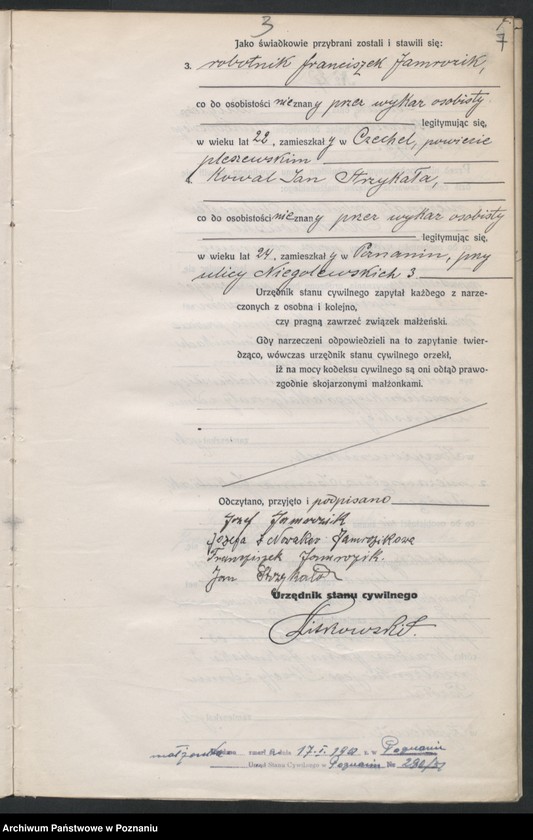 3
7
Jako świadkowie przybrani zostali i stawili się:
3. robotnik Franciszek Jamrozik,
co do osobistości nieznany przez wykaz osobisty
legitymując się,
w wieku lat 22, zamieszkały w Czechel, powiecie
pleszewskim
4. Kowal Jan Strzykała,
co do osobistości nieznany przez wykaz osobisty
legitymując się,
w wieku lat 24, zamieszkały w Poznaniu, przy
ulicy Niegolewskich 3
Urzędnik stanu cywilnego zapytał każdego z narze-
czonych z osobna i kolejno,
czy pragną zawrzeć związek małżeński.
Gdy narzeczeni odpowiedzieli na to zapytanie twier-
dząco, wówczas urzędnik stanu cywilnego orzekł,
iż na mocy kodeksu cywilnego są oni odtąd prawo-
zgodnie skojarzonymi małżonkami.
Odczytano, przyjęto i podpisano
Józef Jamrozik
Józefa z Nowaków Jamrozikowa
Franciszek Jamrozik.
Jan Strzykała
Urzędnik stanu cywilnego
małżonka zmarła dnia 17.I. r. w Poznaniu
Urząd Stanu Cywilnego w Poznaniu Nr
Archiwum Państwowe w Poznaniu